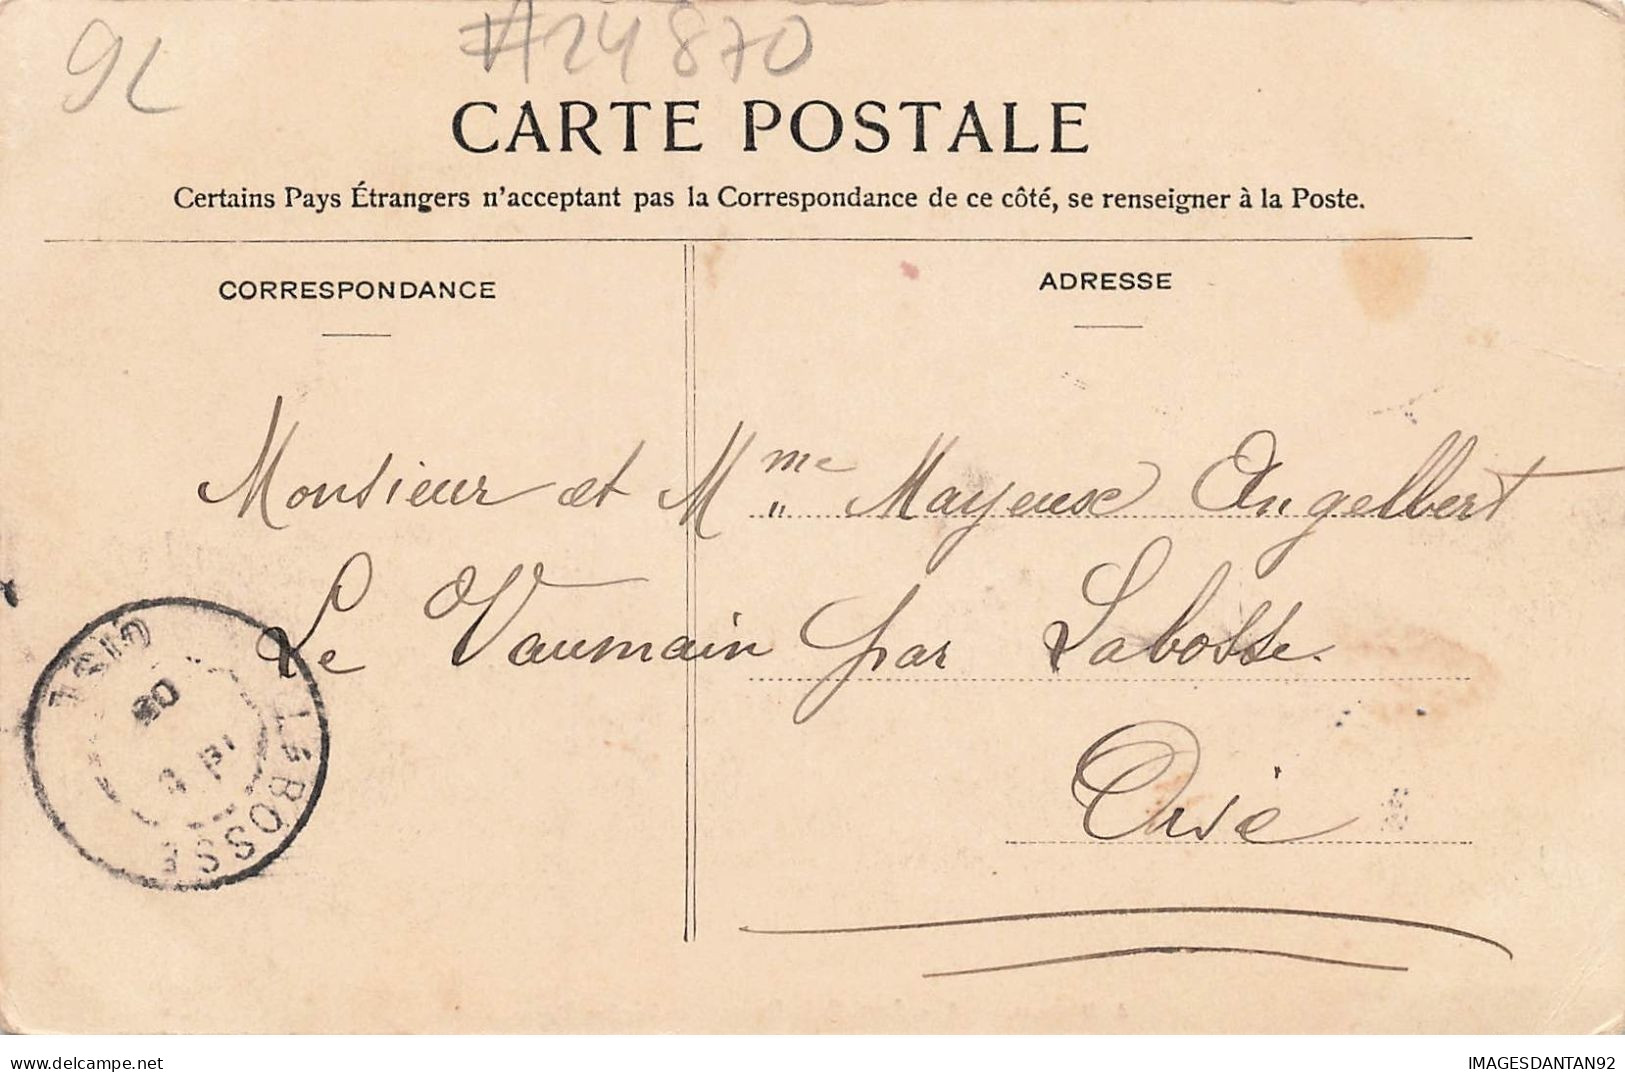 9L
#24870
CARTE POSTALE
Certains Pays Étrangers n'acceptant pas la Correspondance de ce côté, se renseigner à la Poste.
CORRESPONDANCE
ADRESSE
Monsieur et Mme Mayeux Angelbert
Le Vaumain par Labosse
Oise
LABOSSE
OISE
delcampe.net
IMAGESDANTAN92